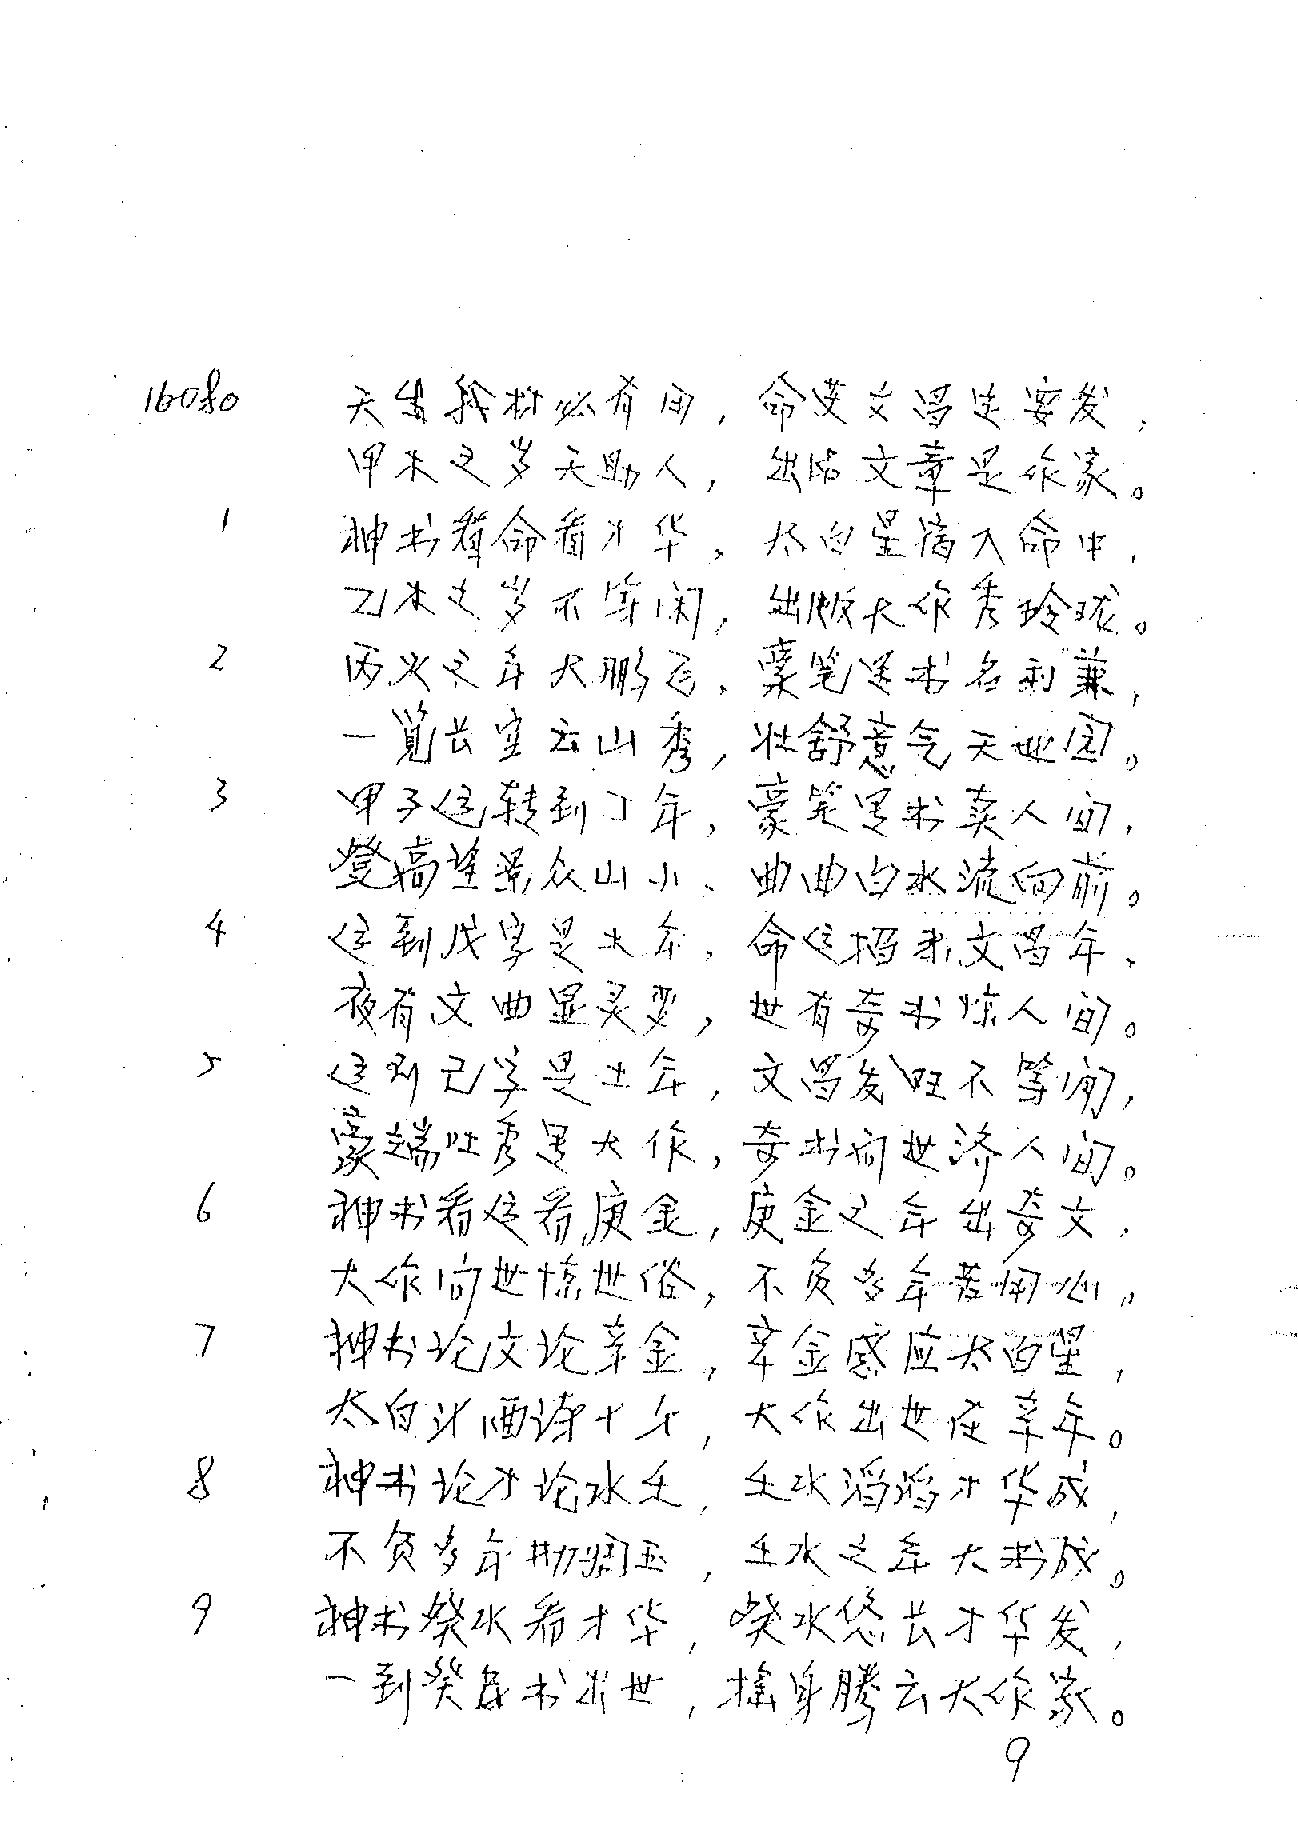 16080 天生我材必有用，命逢文昌运要发，
甲木之岁天助人，出版文章是作家。
1 神书看命看才华，太白星宿入命中，
乙木之岁不等闲，出版大作秀玲珑。
2 丙火之年大鹏飞，豪笔是书名利兼，
一览长空云山秀，壮舒意气天地间。
3 甲子运转到丁年，豪笔是书卖人间，
登高望景众山小，曲曲白水流向前。
4 运到戊字是土年，命运招来文昌年，
夜有文曲显灵聖，世有奇书惊人间。
5 运到己字是土年，文昌发旺不等闲，
豪端吐秀是大作，奇书向世济人间。
6 神书看运看庚金，庚金之年出奇文，
大作问世惊世俗，不负多年苦用心。
7 神书论文论辛金，辛金感应太白星，
太白斗酒诗十才，大作出世在辛年。
8 神书论才论水壬，壬水滔滔才华成，
不负多年，壬水之年大书成。
9 神书癸水看才华，癸水悠长才华发，
一到癸年书出世，摇身腾云大作家。
9